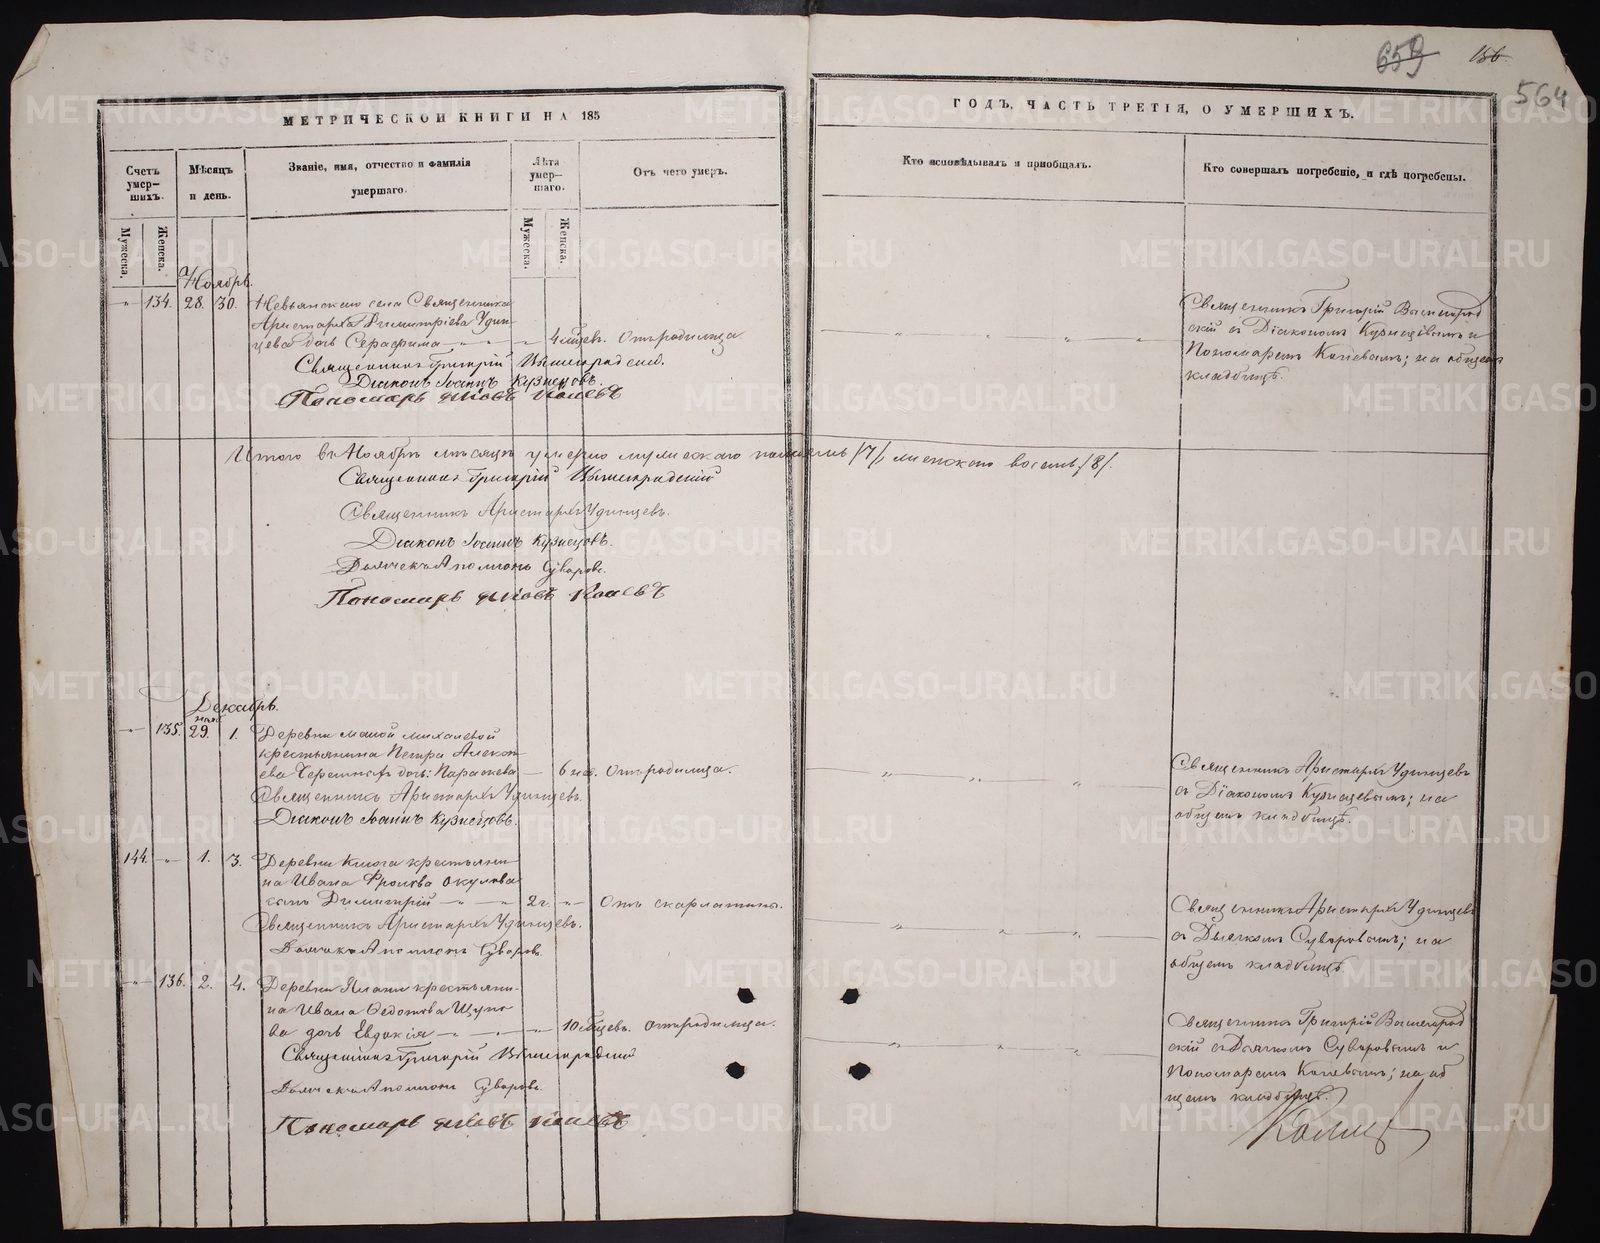 659 156
564
МЕТРИЧЕСКОЙ КНИГИ НА 185
ГОДЪ, ЧАСТЬ ТРЕТІЯ, О УМЕРШИХЪ.
Счетъ умер-шихъ.
Мѣсяцъ и день.
Званіе, имя, отчество и фамилія
умершаго.
Лѣта умер-шаго.
Отъ чего умеръ.
Кто исповѣдывалъ и пріобщалъ.
Кто совершалъ погребеніе, и гдѣ погребены.
Мужеска.
Женска.
Мужеска.
Женска.
Ноябрь.
134. 28. 30. Невьянскаго села Священника
Аристарха Димитріева Удин-
цева дочь Серафима 4 мѣсев. Отъ родимца
Священникъ Григорій Вышеградскій.
Діаконъ Іоаннъ Кузнецовъ.
Пономарь Яковъ Копевъ
Священникъ Григорій Вышеград
скій съ Діакономъ Кузнецовымъ и
Пономаремъ Копевымъ; на общемъ
кладбищѣ.
Итого въ Ноябрѣ мѣсяцѣ умерло мужескаго /7/, женскаго восемь /8/.
Священникъ Григорій Вышеградскій
Священникъ Аристархъ Удинцевъ.
Діаконъ Іоаннъ Кузнецовъ.
Дьячекъ Аполлонъ Суворовъ.
Пономарь Яковъ Копевъ
Декабрь.
нояб.
135. 29. 1. Деревни малой михалевой
крестьянина Петра Алексѣ-
ева дочь: Параскева 6 нед. Отъ родимца.
Священникъ Аристархъ Удинцевъ.
Діаконъ Іоаннъ Кузнецовъ.
Священникъ Аристархъ Удинцевъ
съ Діакономъ Кузнецовымъ; на
общемъ кладбищѣ.
144. 1. 3. Деревни Ключа крестьяни-
на Ивана Фролова Окулова
сынъ Димитрій 2 г. Отъ скарлатины.
Священникъ Аристархъ Удинцевъ.
Дьячекъ Аполлонъ Суворовъ.
Священникъ Аристархъ Удинцевъ
съ Дьячкомъ Суворовымъ; на
общемъ кладбищѣ.
136. 2. 4. Деревни крестьяни-
на Ивана Федотова Щупо
ва дочь Евдокія 10 мѣсев. Отъ родимца.
Священникъ Григорій Вышеградскій
Дьячекъ Аполлонъ Суворовъ.
Пономарь Яковъ Копевъ
Священникъ Григорій Вышеград
скій съ Дьячкомъ Суворовымъ и
Пономаремъ Копевымъ; на об
щемъ кладбищѣ.
METRIKI.GASO-URAL.RU